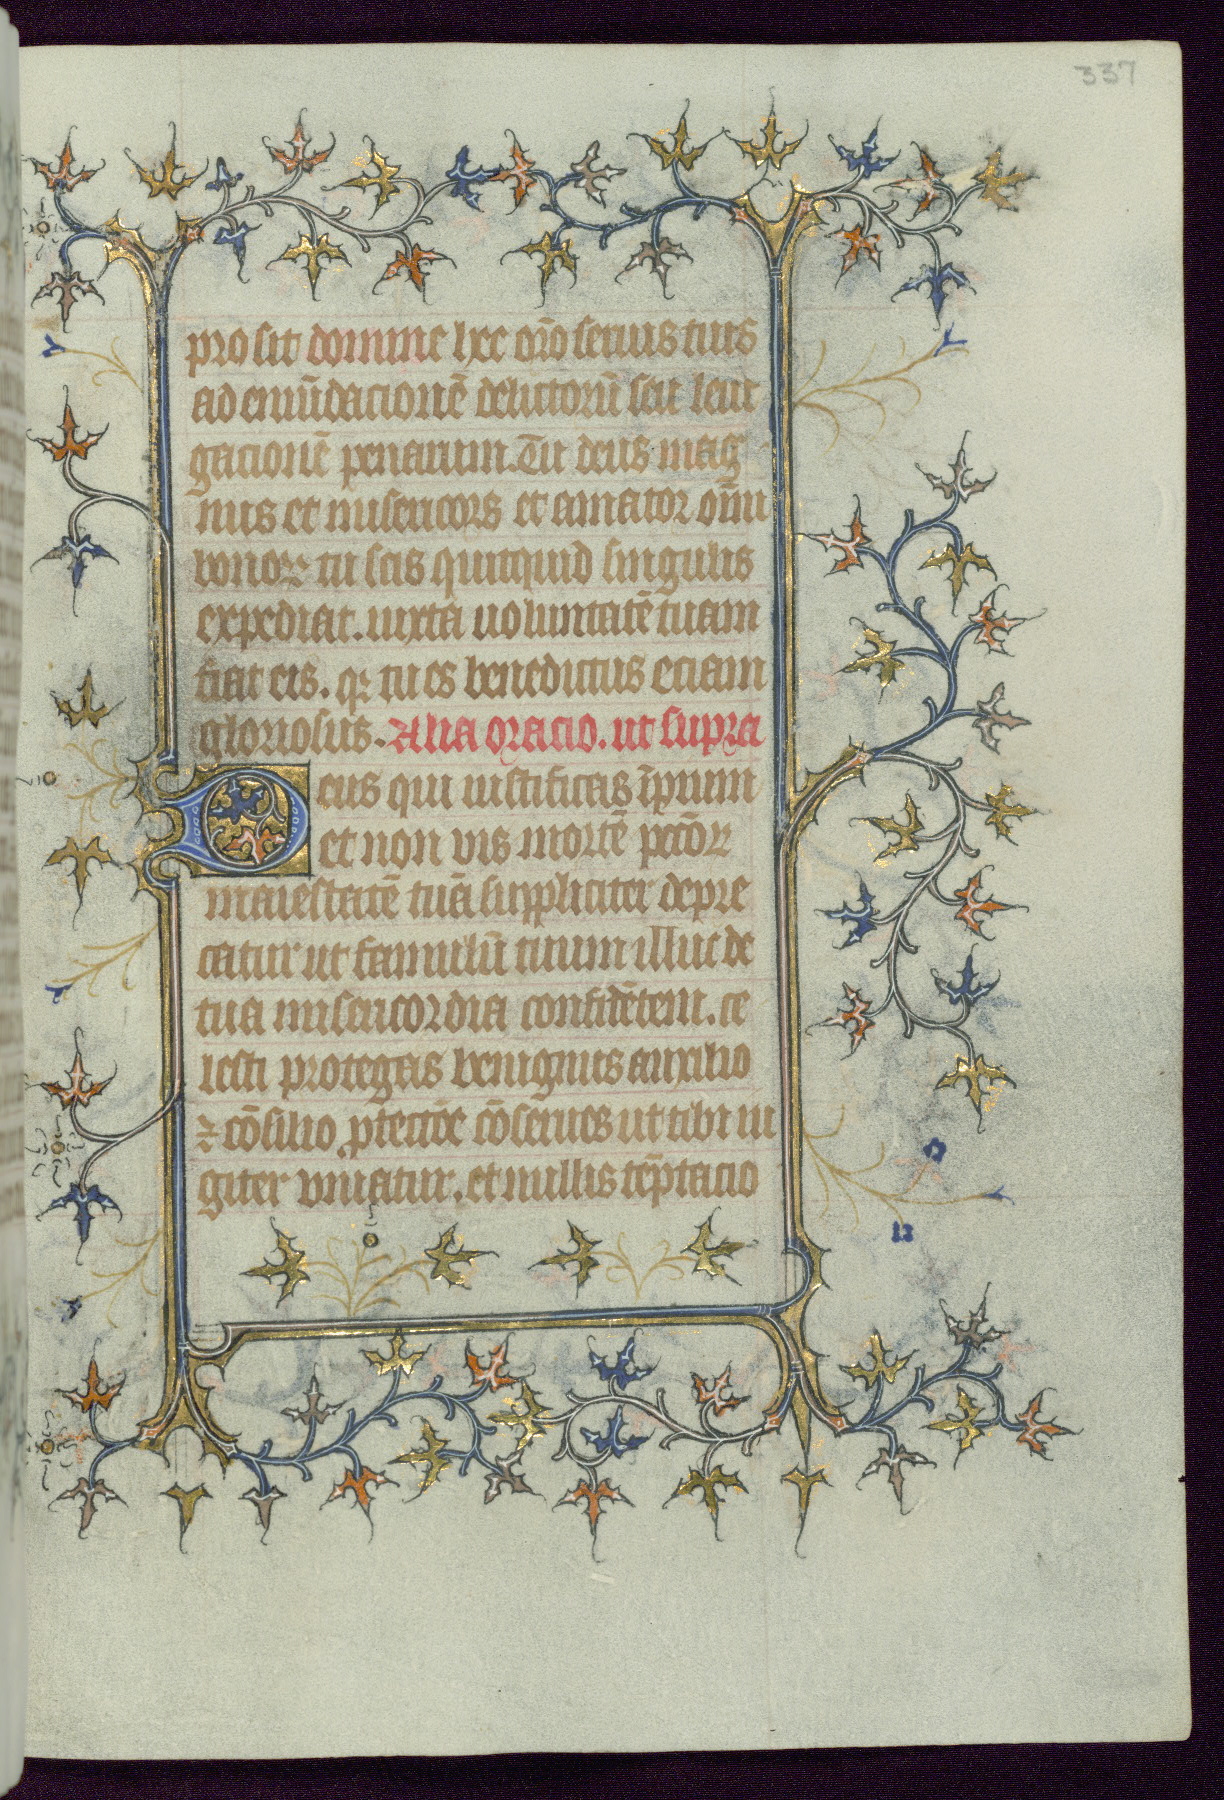 337
prosit domine hec or̄o seruis tuis
ad emūdacionē delictorū seu leui
gacionē penarum. Tu deus mag
nus et misericors et amator om̄i
bonoꝝ tu scis quitquid singulis
expediat. iuxta uoluntatē tuam
fiat eis. qꝛ tu es benedictus eciam
gloriosus. Alia oracio. ut supra
Deus qui iustificas īpium
et non vis mortē pctōꝝ
maiestatē tuā suppliciter depre
catur ut famulū tuum illut de
tua misericordia confidētem. ce
lesti protegas benignus auxilio
⁊ cōsilio ꝓtectiōe cōserues ut tibi iu
giter vniatur. et nullis tēptacio